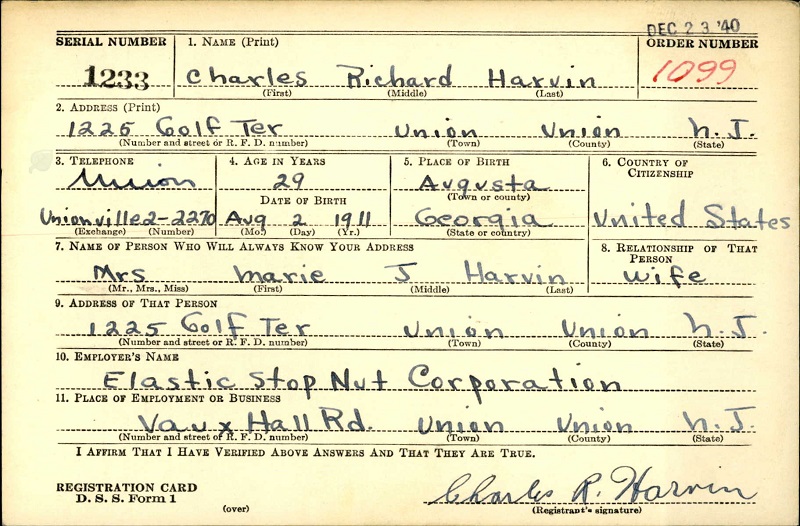 DEC 23 '40
SERIAL NUMBER 1. NAME (Print) ORDER NUMBER
1233 Charles Richard Harvin 1099
(First) (Middle) (Last)
2. ADDRESS (Print)
1225 Golf Ter Union Union N.J.
(Number and street or R. F. D. number) (Town) (County) (State)
3. TELEPHONE 4. AGE IN YEARS 5. PLACE OF BIRTH 6. COUNTRY OF CITIZENSHIP
Union 29 Augusta
DATE OF BIRTH (Town or county)
Unionville2-2270 Aug 2 1911 Georgia United States
(Exchange) (Number) (Mo.) (Day) (Yr.) (State or country)
7. NAME OF PERSON WHO WILL ALWAYS KNOW YOUR ADDRESS 8. RELATIONSHIP OF THAT PERSON
Mrs Marie J Harvin Wife
(Mr., Mrs., Miss) (First) (Middle) (Last)
9. ADDRESS OF THAT PERSON
1225 Golf Ter Union Union N.J.
(Number and street or R. F. D. number) (Town) (County) (State)
10. EMPLOYER'S NAME
Elastic Stop Nut Corporation
11. PLACE OF EMPLOYMENT OR BUSINESS
Vaux Hall Rd. Union Union N.J.
(Number and street or R. F. D. number) (Town) (County) (State)
I AFFIRM THAT I HAVE VERIFIED ABOVE ANSWERS AND THAT THEY ARE TRUE.
REGISTRATION CARD
D. S. S. Form 1
(over)
Charles R. Harvin
(Registrant's signature)